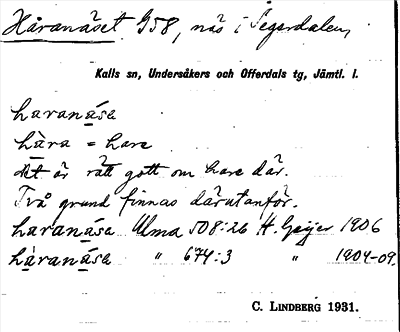 Håranåset G58, näs i Segerdalen,
Kalls sn, Undersåkers och Offerdals tg, Jämtl. l.
haranása
hàra = hare
det är rätt gott om hare där.
Två grund finnas därutanför.
haranása Ulma 508:26 H. Geijer 1906
hàranása " 674:3 " 1904-09.
C. LINDBERG 1931.